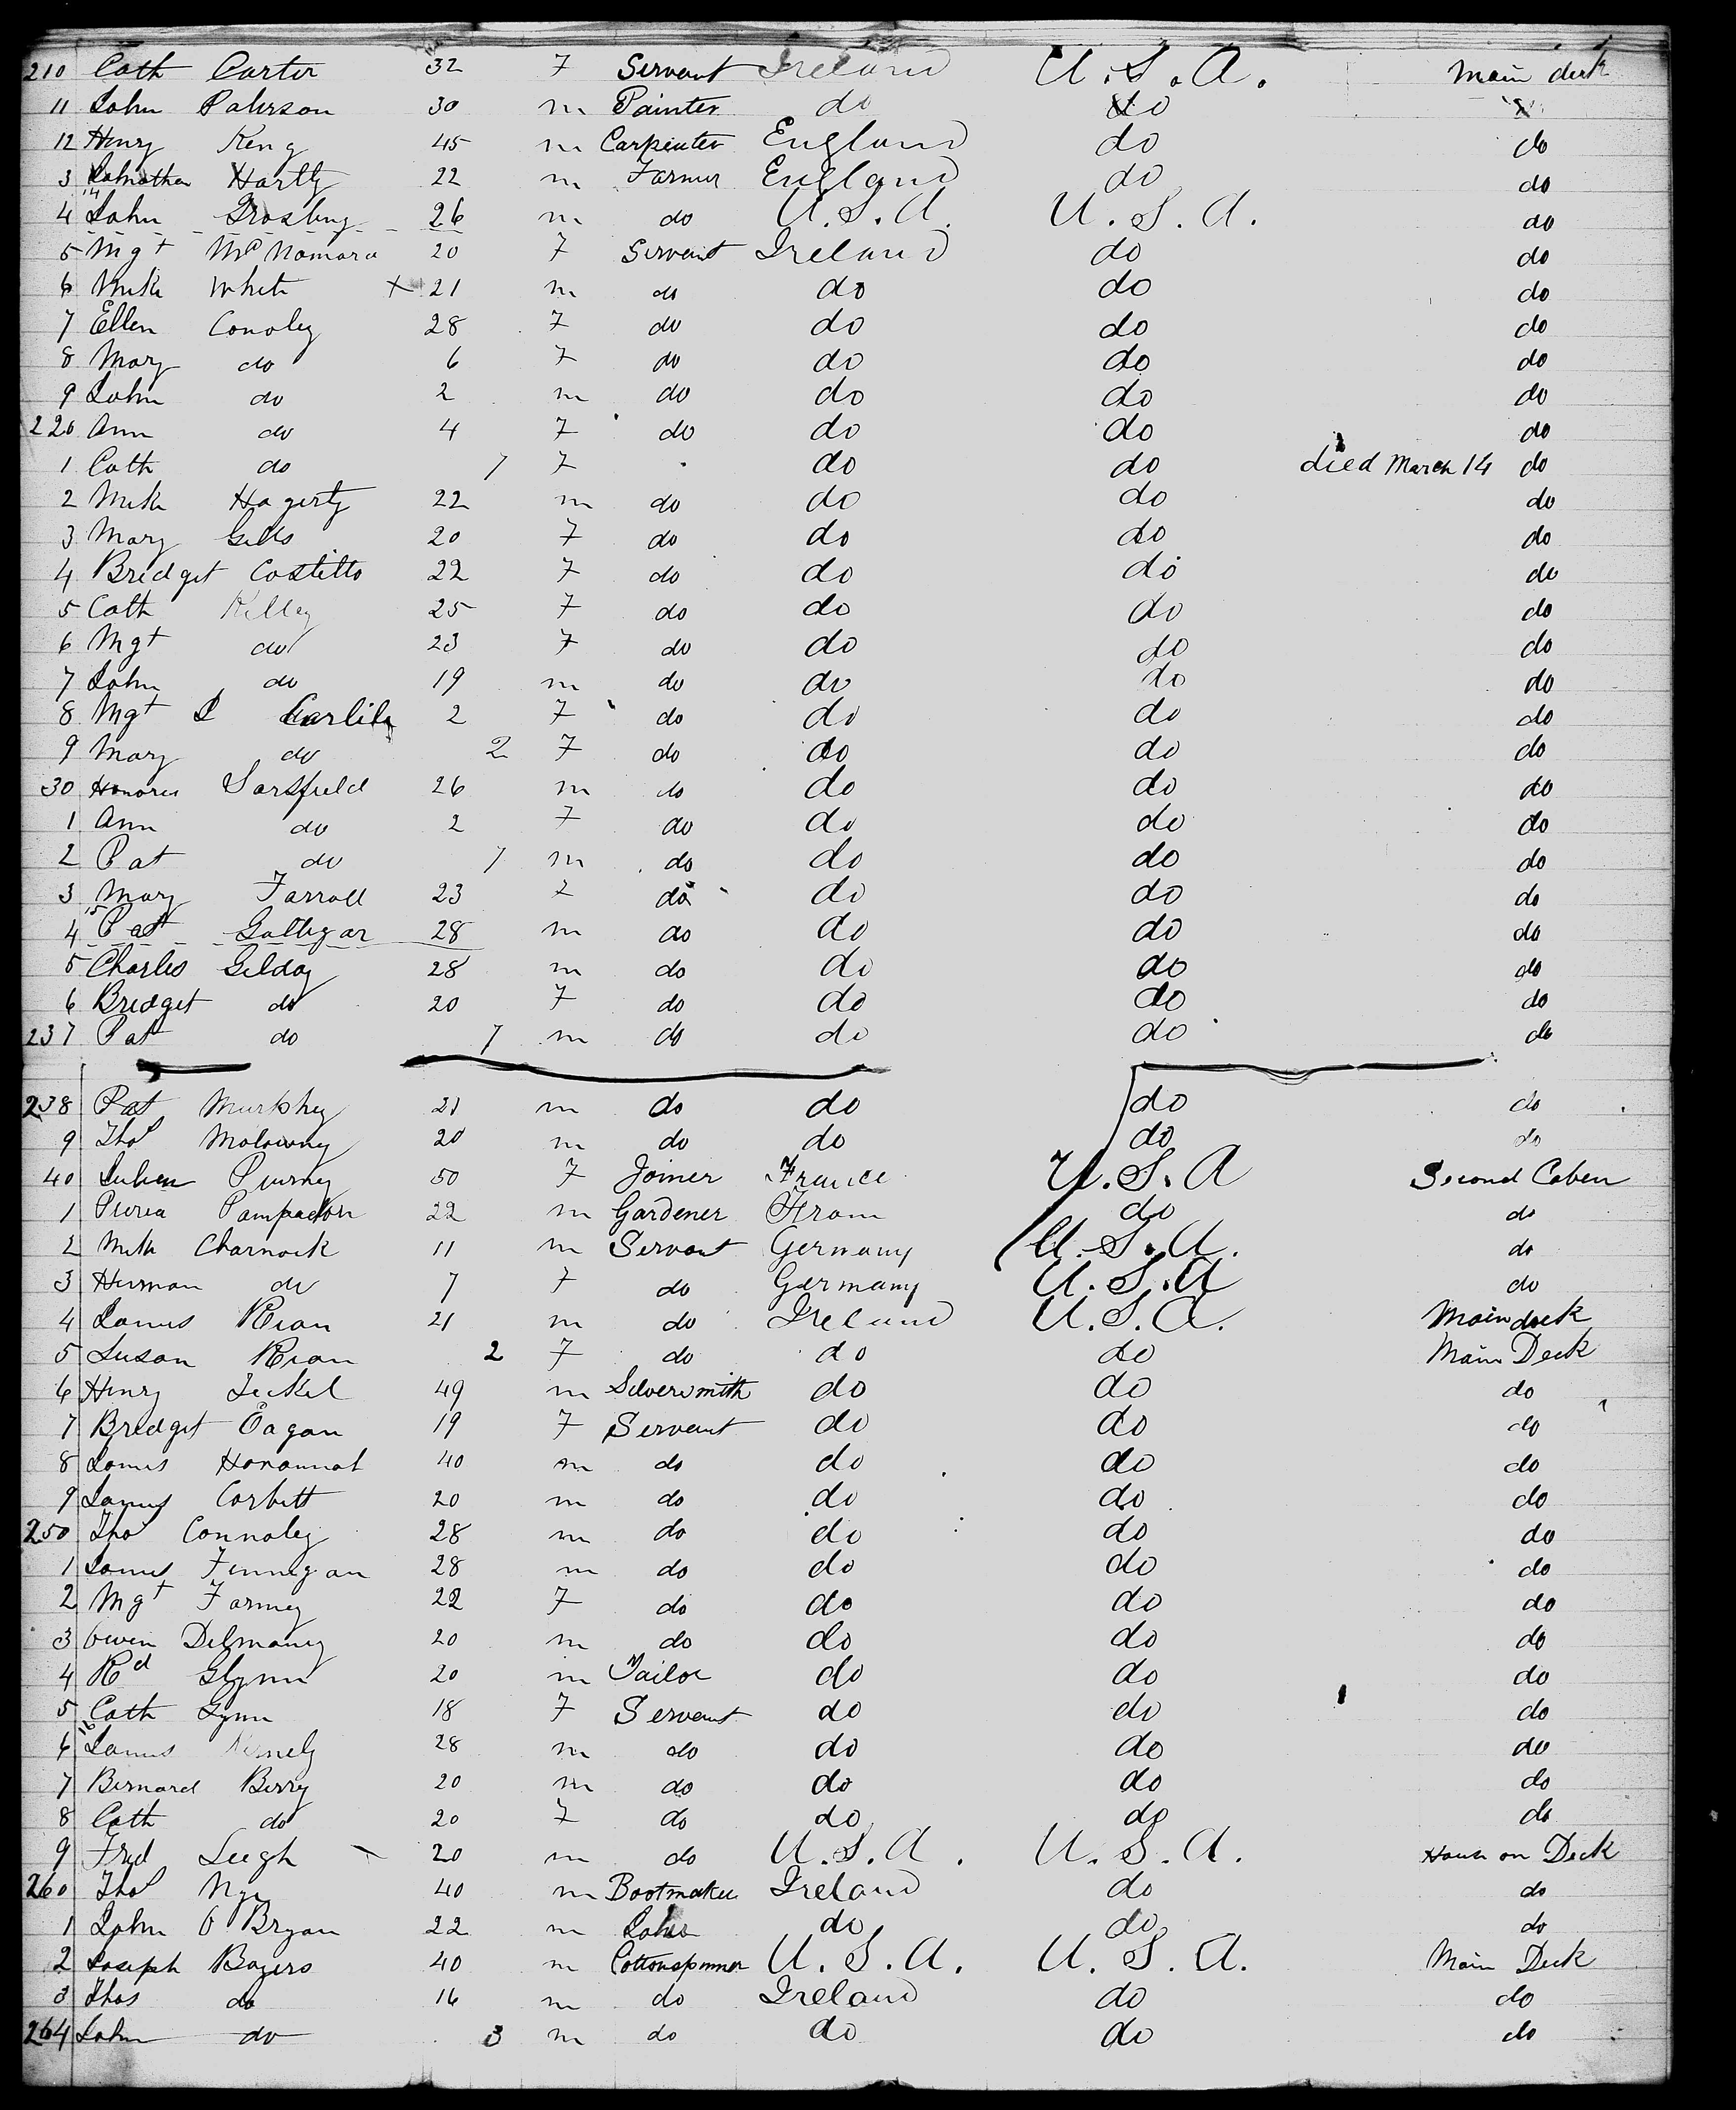 210 Cath Carter 32 F Servant Ireland U.S.A. Main deck
11 John 30 m Painter do do
12 Henry King 45 m Carpenter England do do
3 Johnathan Hartly 22 m Farmer England do do
4 John 26 m do U.S.A. U.S.A. do
5 Mgt McNamara 20 F Servant Ireland do do
6 Mike White + 21 m do do do do
7 Ellen Conoley 28 F do do do do
8 Mary do 6 F do do do do
9 John do 2 m do do do do
220 Ann do 4 F do do do do
1 Cath do 7 F do do died March 14 do
2 Mik Hagerty 22 m do do do do
3 Mary 20 F do do do do
4 Bridget Costillo 22 F do do do do
5 Cath Killey 25 F do do do do
6 Mgt do 23 F do do do do
7 John do 19 m do do do do
8 Mgt 2 F do do do do
9 Mary do 2 F do do do do
30 Honorer Sarsfield 26 m do do do do
1 Ann do 2 F do do do do
2 Pat do 7 m do do do do
3 Mary Farroll 23 F do do do do
4 Pat 28 m do do do do
5 Charles Gilday 28 m do do do do
6 Bridget do 20 F do do do do
237 Pat do 7 m do do do do
238 Pat Murphy 21 m do do do do
9 Thos Molowny 20 m do do do do
40 50 F Joiner France U.S.A Second Caben
1 22 m Gardener Fran do do
2 Mik Charnock 11 m Servant Germany U.S.A. do
3 Herman do 7 F do Germany U.S.A do
4 James Rian 21 m do Ireland U.S.A. Main deck
5 Susan Rian 2 F do do do Main Deck
6 Henry Jeckel 49 m Silversmith do do do
7 Bridget Eagan 19 F Servant do do do
8 James 40 m do do do do
9 James Corbett 20 m do do do do
250 Tho Connoley 28 m do do do do
1 James Finnigan 28 m do do do do
2 Mgt Farmey 22 F do do do do
3 Owen Delmaney 20 m do do do do
4 Rd Glynn 20 m Tailor do do do
5 Cath Lynn 18 F Servant do do do
6 James 28 m do do do do
7 Bernard Berry 20 m do do do do
8 Cath do 20 F do do do do
9 Fred Leigh 20 m do U.S.A. U.S.A. House on Deck
260 Thos Nye 40 m Bootmaker Ireland do do
1 John O Bryan 22 m do do do
2 Joseph Bogers 40 m Cottonspinner U.S.A. U.S.A. Main Deck
3 Thos do 16 m do Ireland do do
264 John do 3 m do do do do